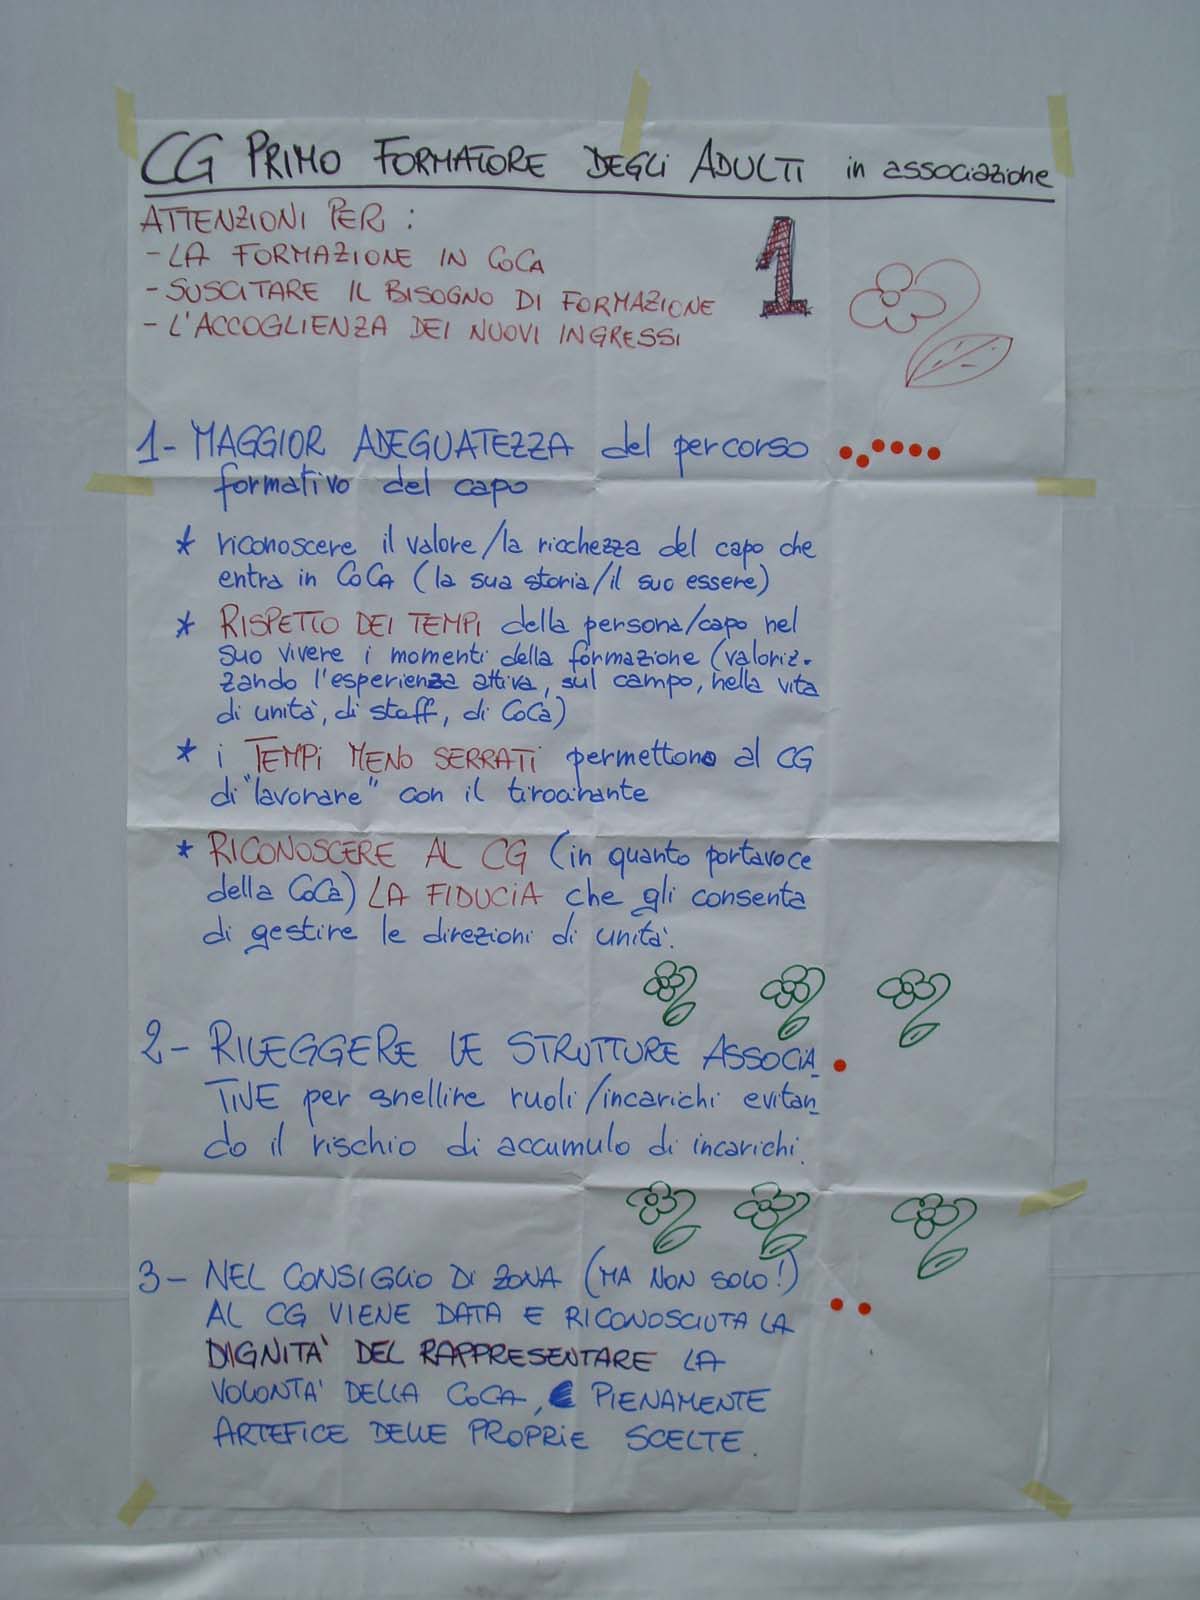 CG PRIMO FORMATORE DEGLI ADULTI in associazione
ATTENZIONI PER :
- LA FORMAZIONE IN CoCA
- SUSCITARE IL BISOGNO DI FORMAZIONE
- L'ACCOGLIENZA DEI NUOVI INGRESSI
1
1- MAGGIOR ADEGUATEZZA del percorso
formativo del capo
* riconoscere il valore/la ricchezza del capo che
entra in CoCA (la sua storia/il suo essere)
* RISPETTO DEI TEMPI della persona/capo nel
suo vivere i momenti della formazione (valoriz-
zando l'esperienza attiva, sul campo, nella vita
di unità, di staff, di CoCa)
* i TEMPI MENO SERRATI permettono al CG
di "lavorare" con il tirocinante
* RICONOSCERE AL CG (in quanto portavoce
della CoCa) LA FIDUCIA che gli consenta
di gestire le direzioni di unità.
2- RILEGGERE LE STRUTTURE ASSOCIA_
TIVE per snellire ruoli/incarichi evitan_
do il rischio di accumulo di incarichi.
3- NEL CONSIGLIO DI ZONA (MA NON SOLO!)
AL CG VIENE DATA E RICONOSCIUTA LA
DIGNITA' DEL RAPPRESENTARE LA
VOLONTA' DELLA CoCA, E PIENAMENTE
ARTEFICE DELLE PROPRIE SCELTE.